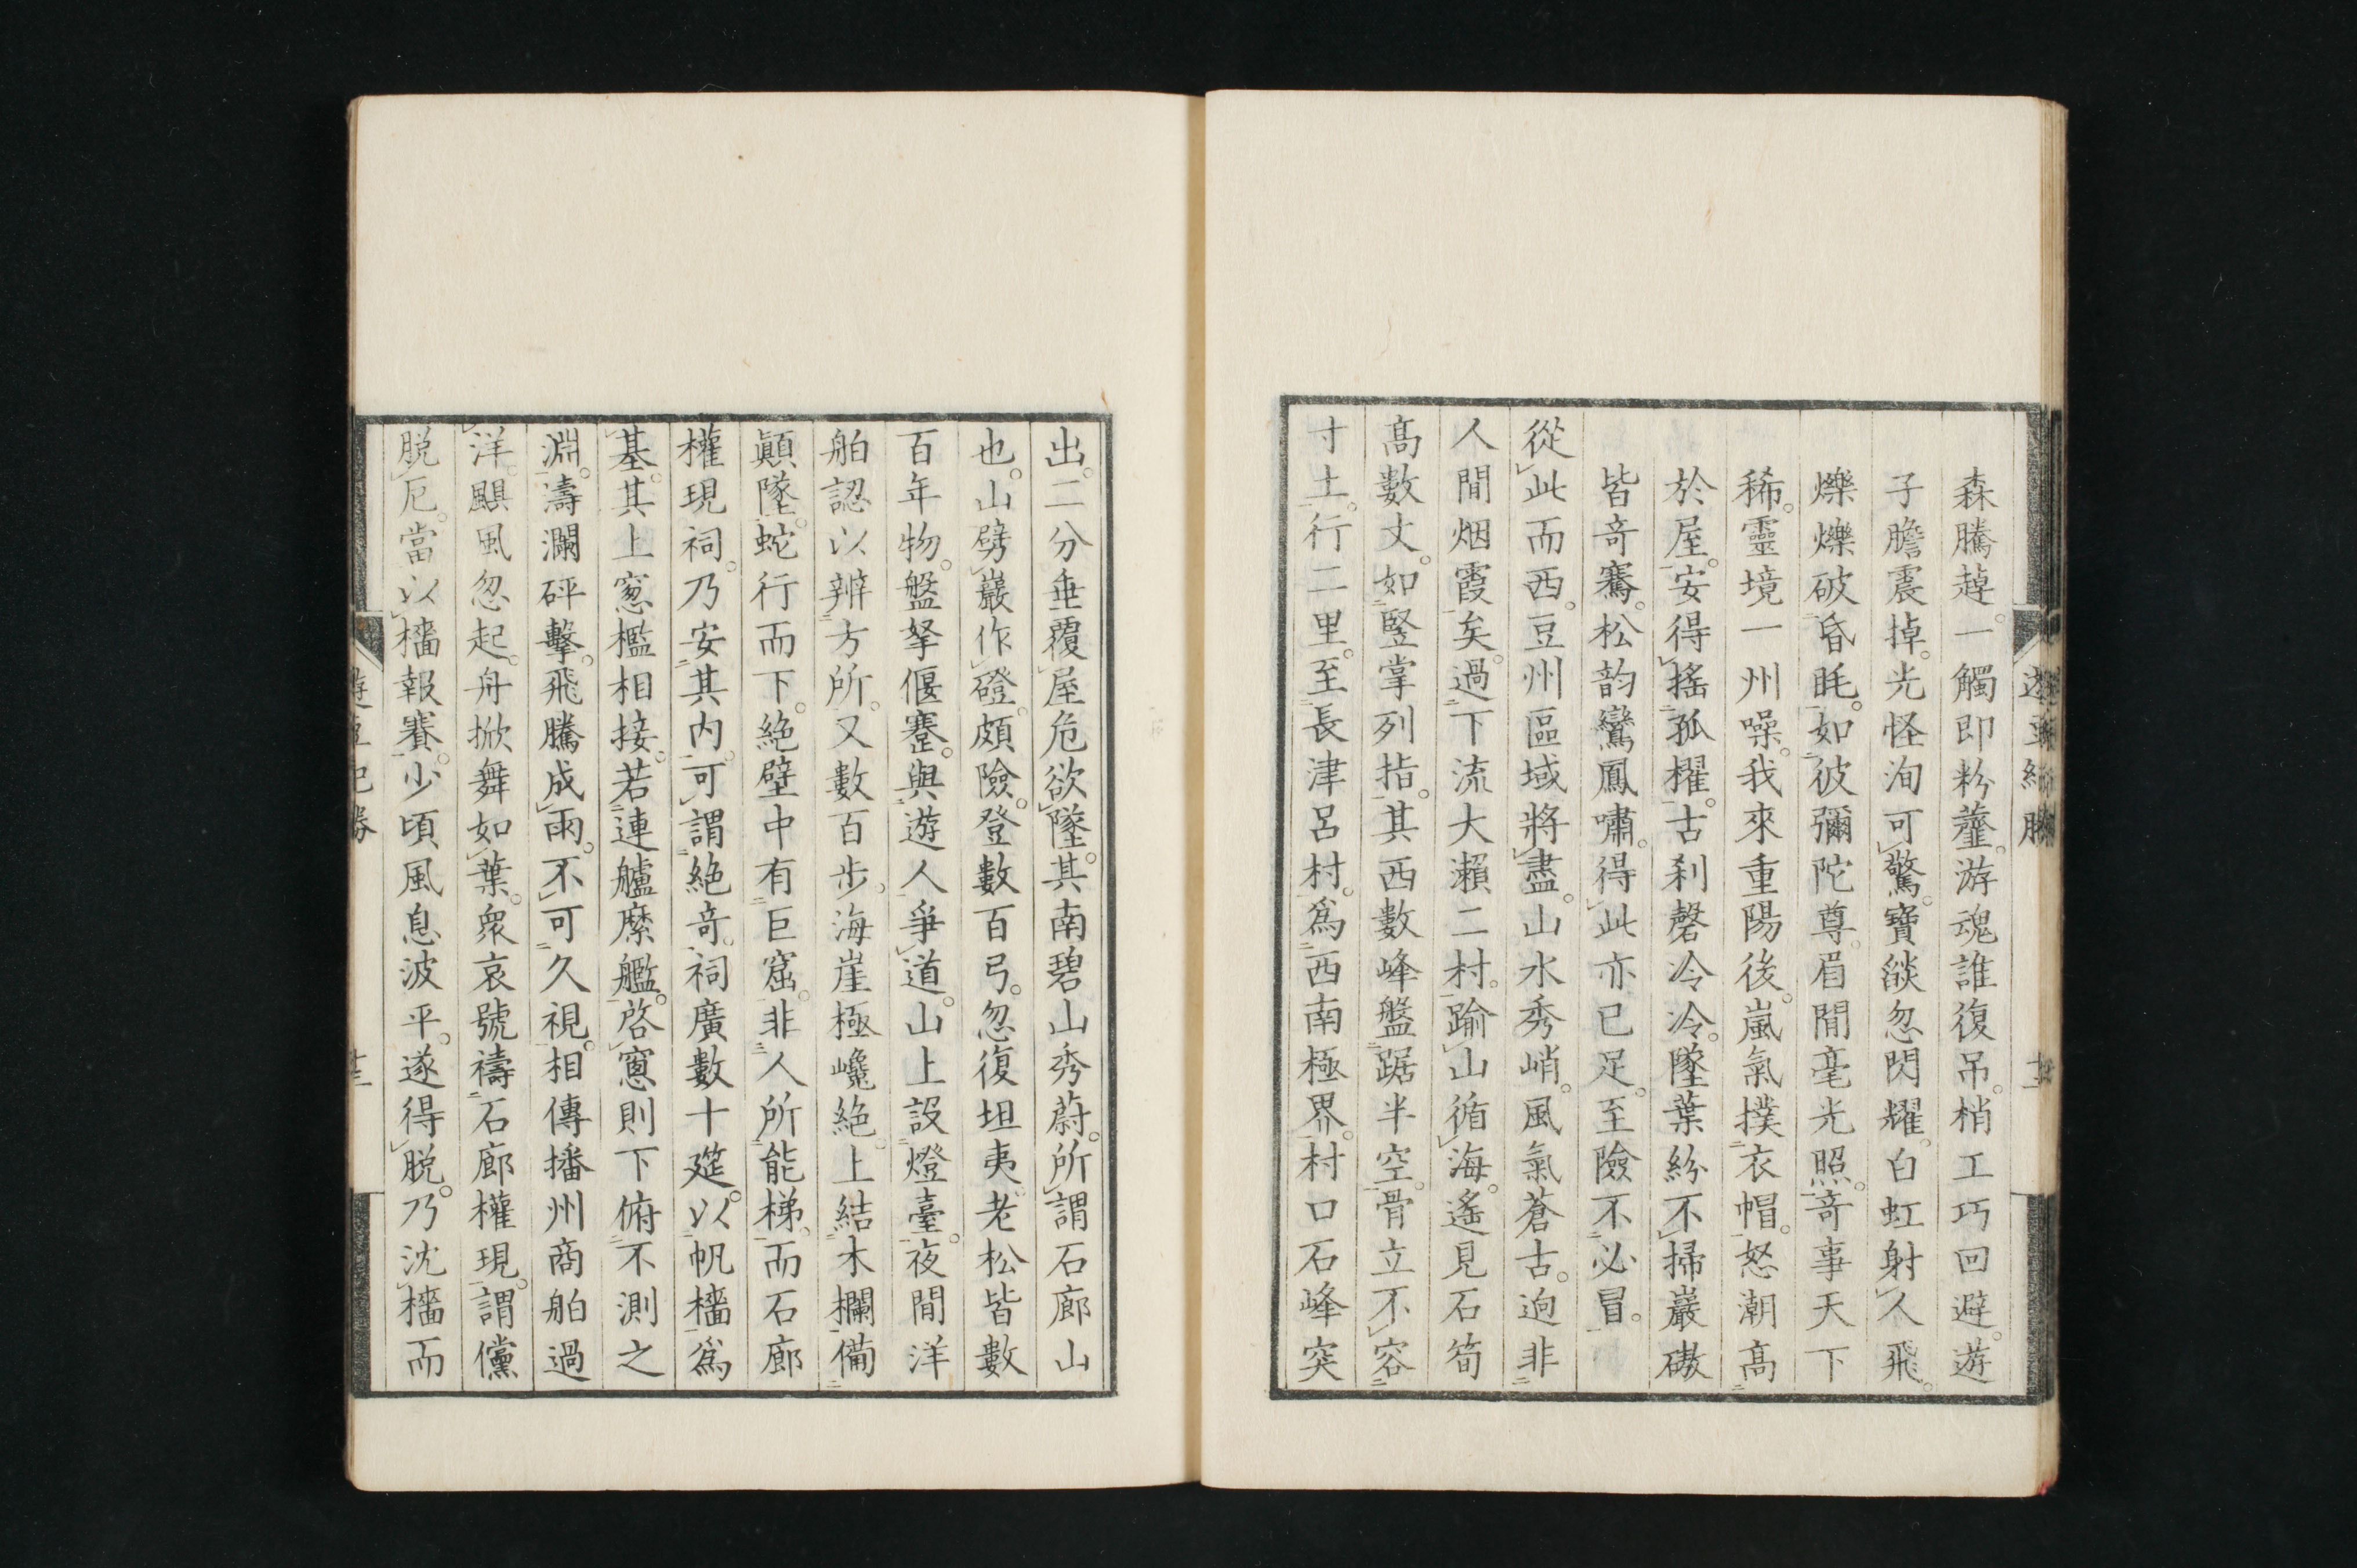 森騰趠。一觸即粉虀。游魂誰復吊。梢工巧回避。遊
子膽震掉。光怪洵可驚。寶燄忽閃耀。白虹射人飛。
爍爍破昏眊。如彼彌陀尊。眉間毫光照。奇事天下
稀。靈境一州噪。我來重陽後。嵐氣撲衣帽。怒潮高
於屋。安得搖孤櫂。古刹磬冷冷。墜葉紛不掃。巖磝
皆奇騫。松韵鸞鳳嘯。得此亦已足。至險不必冒。
從此而西。豆州區域將盡。山水秀峭。風氣蒼古。逈非
人間烟霞矣。過下流大瀬二村。踰山循海。遙見石筍
高數丈。如竪掌列指。其西數峰盤踞半空。骨立不容
寸土。行二里。至長津呂村。爲西南極界。村口石峰突
出。二分垂覆屋危欲墜。其南碧山秀蔚。所謂石廊山
也。山劈巖作磴。頗險。登數百弓。忽復坦夷。老松皆數
百年物。盤拏偃蹇。與遊人爭道。山上設燈臺。夜間洋
舶認以辨方所。又數百步。海崖極巉絶。上結木欄備
顚墜。蛇行而下。絶壁中有巨窟。非人所能梯。而石廊
權現祠。乃安其内。可謂絶奇。祠廣數十筵。以帆檣爲
基。其上窓檻相接。若連艫縻艦。啓窓則下俯不測之
淵。濤瀾砰擊。飛騰成雨。不可久視。相傳播州商舶過
洋。颶風忽起。舟掀舞如葉。衆哀號禱石廊權現。謂儻
脱厄。當以檣報賽。少頃風息波平。遂得脱。乃沈檣而
遊豆紀勝
十三